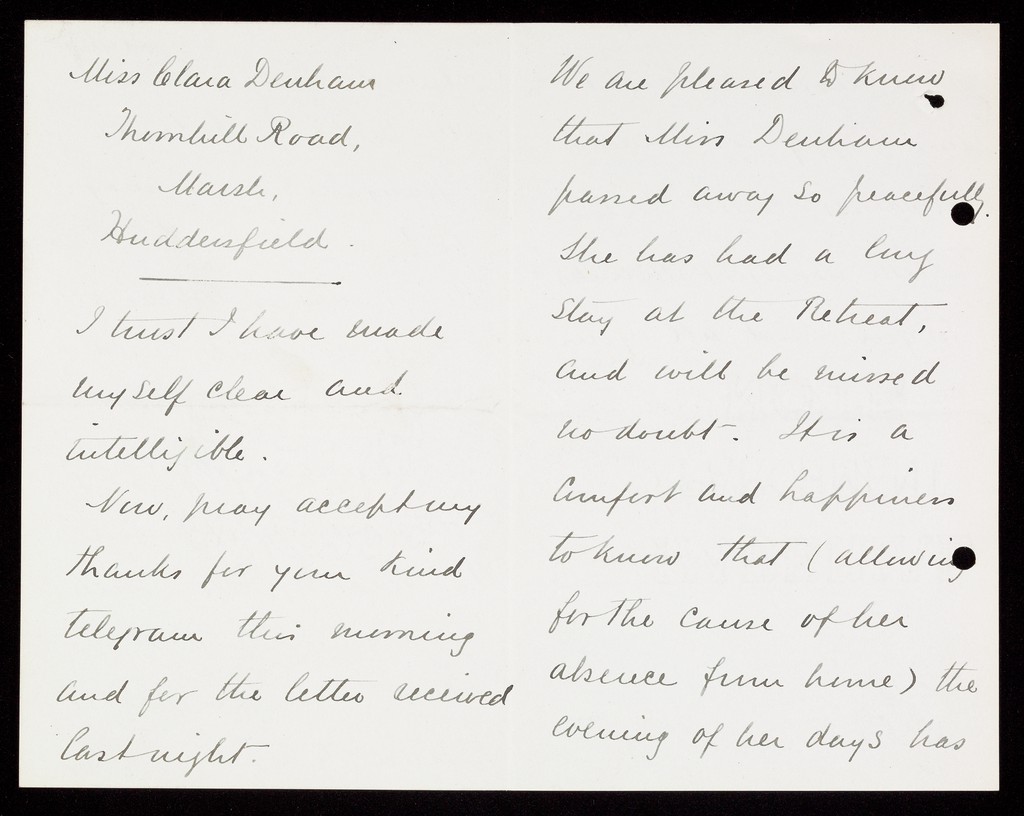 Miss Clara Denham
Thornhill Road,
Marsh,
Huddersfield.
I trust I have made
myself clear and
intelligible.
Now, pray accept my
thanks for your kind
telegram this morning
and for the letter received
last night.
We are pleased to know
that Miss Denham
passed away so peacefully.
She has had a long
stay at the Retreat,
and will be missed
no doubt. It is a
comfort and happiness
to know that (allowing
for the cause of her
absence from home) the
evening of her days has